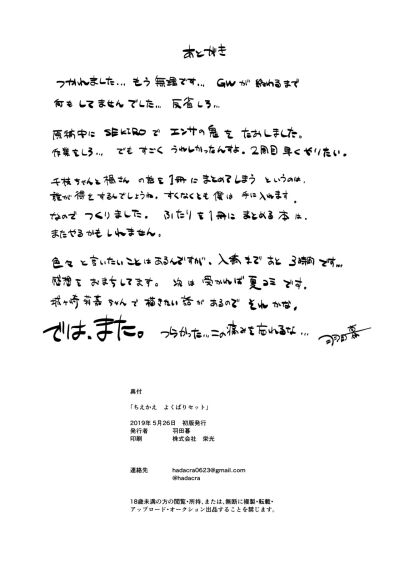 あとがき
つかれました… もう無理です… GWが終わるまで
何もしてませんでした… 反省しろ…
原稿中に SEKIROで エンサの鬼を たおしました。
作業をしろ… でも すごく うれしかったんすよ。2周目 早くやりたい。
千枝ちゃんと楓さん の話を1冊に まとめてしまう というのは、
誰が得をするんでしょうね。すくなくとも僕は 手に入れます。
なので つくりました。 ふたりを1冊にまとめる本は、
またやるかもしれません。
色々と言いたいことはあるんですが、入稿まで あと 3時間です…
感想を おまちしてます。 次は 受かれば 夏コミ です。
城ヶ崎莉嘉ちゃんで描きたい話があるので それかな。
では、また。 つらかった…この痛みを忘れるな… 羽田暮
奥付
「ちえかえ よくばりセット」
2019年5月26日 初版発行
発行者 羽田暮
印刷 株式会社 栄光
連絡先 hadacra0623@gmail.com
@hadacra
18歳未満の方の閲覧・所持、または、無断に複製・転載・
アップロード・オークション出品することを禁じます。